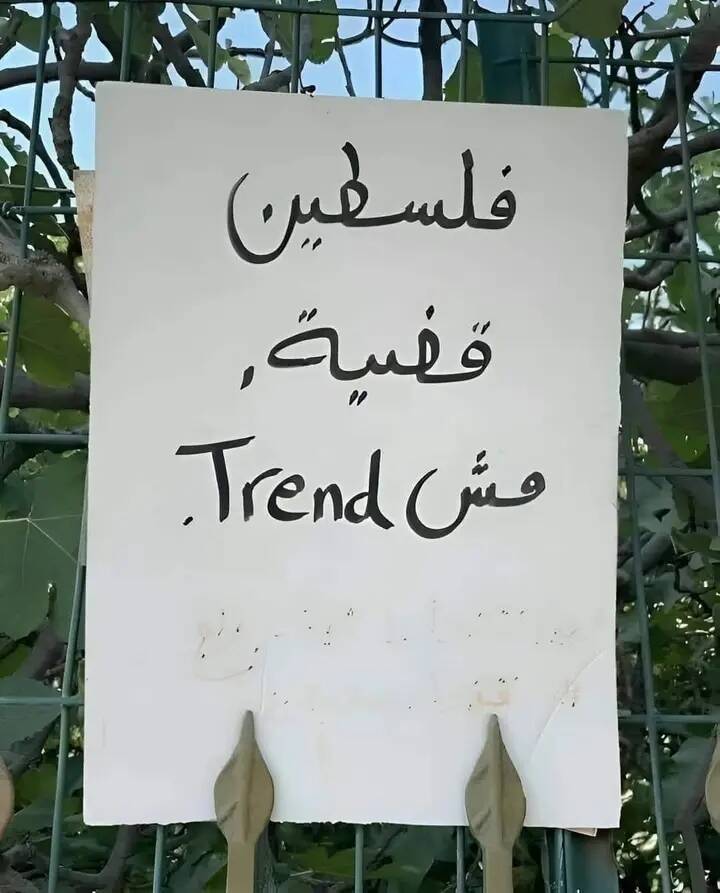 فلسطين
قضية,
مش Trend.